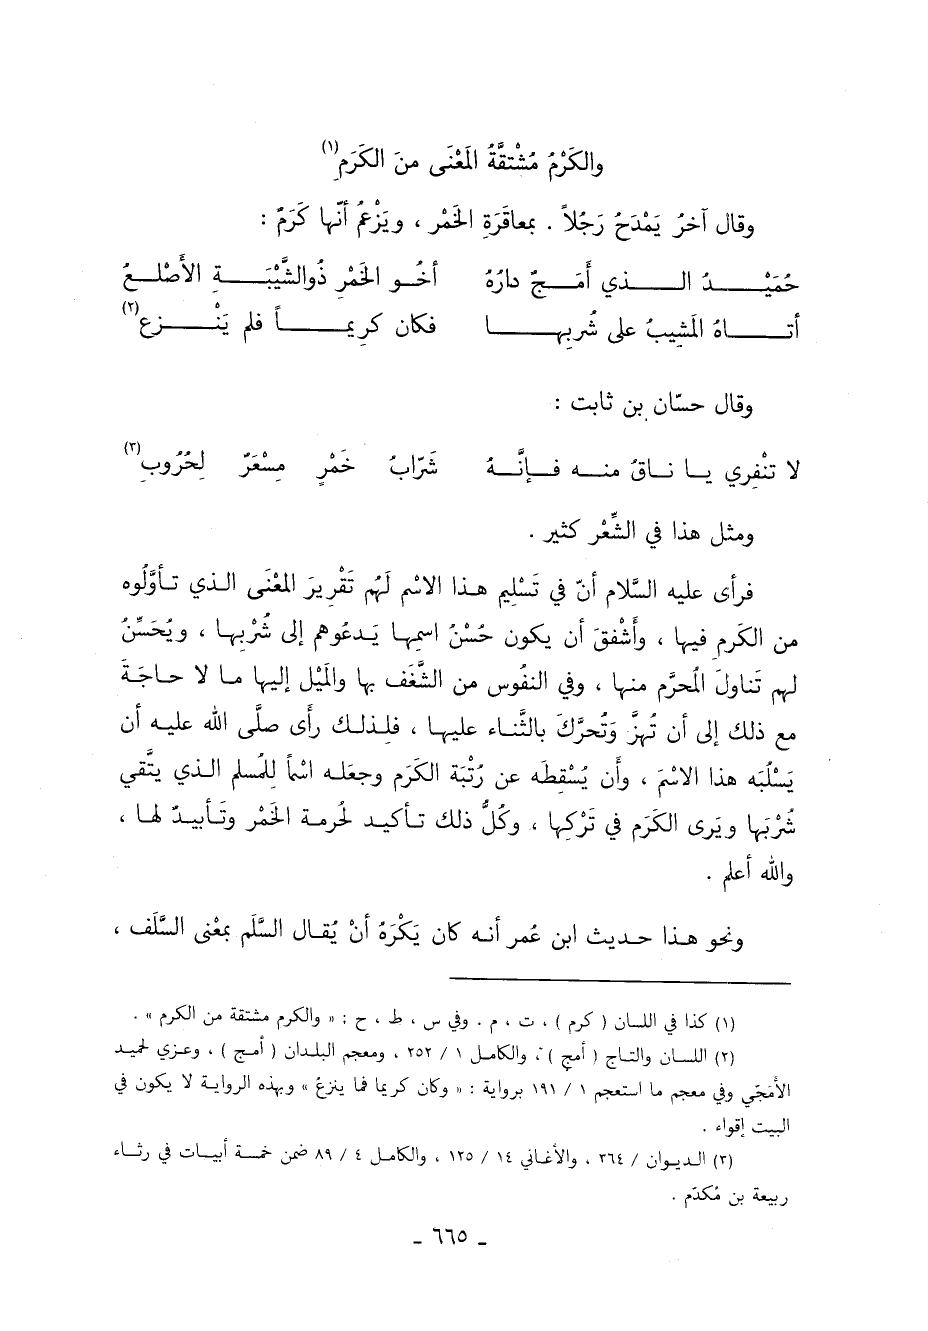 والكَرْمُ مُشْتقَّةُ المَعْنَى منَ الكَرَمِ(١)
وقال آخرُ يَمْدَحُ رَجُلاً . بمعاقَرَةِ الخَمْر ، ويَزْعمُ أنّها كَرَمٌ :
حُمَيْدُ الذي أَمَجٌ دارُهُ أخُو الخَمْرِ ذُوالشَّيْبَةِ الأَصْلعُ
أتاهُ المَشِيبُ على شُربِها فكان كرِيماً فلم يَنْزع(٢)
وقال حسّان بن ثابت :
لا تنْفِري يا ناقُ منه فإنَّهُ شَرّابُ خَمْرٍ مِسْعَرٌ لِحُرُوبِ(٣)
ومثل هذا في الشِّعْر كثير .
فرأى عليه السَّلام أنّ في تَسْلِيم هذا الاسْم لَهُم تَقْرِيرَ المَعْنى الذي تأوَّلُوه
من الكَرم فيها ، وأَشْفقَ أن يكون حُسْنُ اسمِها يَدعُوهم إلى شُرْبِها ، ويُحَسِّنُ
لهم تَناولَ المُحرَّم منها ، وفي النفُوس من الشَّغَف بها والمَيْل إليها ما لا حاجَةَ
مع ذلك إلى أن تُهزَّ وَتُحرَّكَ بالثَّناء عليها ، فلذلك رأى صلَّى الله عليه أن
يَسْلُبَه هذا الاسْمَ ، وأن يُسْقِطَه عن رُتْبَة الكَرَم وجعَله اسْماً للمُسلم الذي يتَّقي
شُرْبَها ويَرى الكَرَم في تَرْكِها ، وكُلُّ ذلك تأكيد لحُرمة الخَمْر وتَأبيدٌ لها ،
والله أعلم .
ونحو هذا حديث ابن عُمر أنه كان يَكْرَهُ أنْ يُقال السَّلَم بمعْنى السَّلَف ،
(١) كذا في اللسان ( كرم ) ، ت ، م . وفي س ، ط ، ح : « والكرم مشتقة من الكرم » .
(٢) اللسان والتاج ( أمج ) ، والكامل ١ / ٢٥٢ ، ومعجم البلدان ( أمج ) ، وعزي لحميد
الأَمَجَي وفي معجم ما استعجم ١ / ١٩١ برواية : « وكان كريما فما ينزعُ » وبهذه الرواية لا يكون في
البيت إقواء .
(٣) الديوان / ٣٦٤ ، والأغاني ١٤ / ١٢٥ ، والكامل ٤ / ٨٩ ضمن خمسة أبيات في رثاء
ربيعة بن مُكدّم .
ـ ٦٦٥ ـ